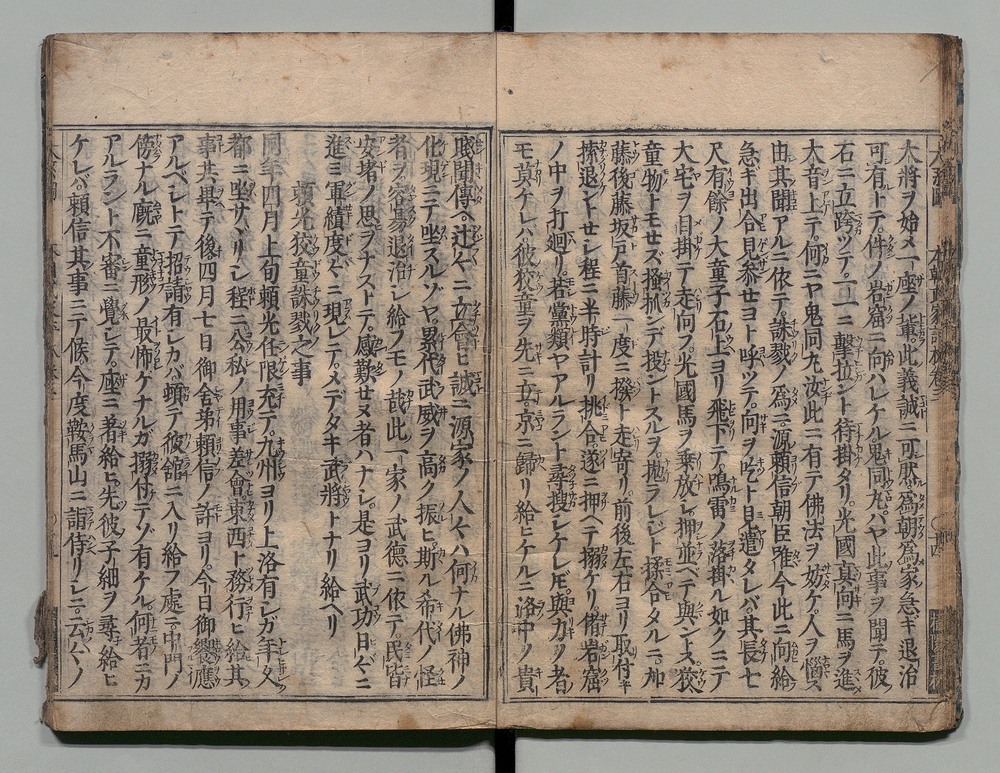 大將ヲ始メ一座ノ輩此義誠ニ可然為朝為家急ギ退治
可有トテ件ノ岩窟ニ向ハレケル鬼同丸ハヤ此事ヲ聞テ彼
石ニ立跨ッテ一一ニ擊拉ント待掛タリ光國真向ニ馬ヲ進
大音上テ何ニヤ鬼同丸汝此ニ有テ佛法ヲ妨ケ人ヲ惱ス
由其聞アルニ依テ誅戮ノ為ニ源賴信朝臣唯今此ニ向給
急ギ出合見參セヨト呼ツテ向ヲ吃ト見遣タレバ其長七
尺有餘ノ大童子石上ヨリ飛下テ鳴雷ノ落掛ル如クニテ
大宅ヲ目掛テ走向フ光國馬ヲ乗放レ押並ベテ與ントス狡
童物トモセズ搔抓ンデ投ントスルヲ抛ラレジト揉合タルニ加
藤後藤坂戸首藤一度ニ撥ト走寄リ前後左右ヨリ取付キ
搸退ントセシ程ニ半時計リ挑合遂ニ押ヘテ搦ケリ偖岩窟
ノ中ヲ打廻リ若黨類ヤアルラント尋搜シケレ𪜈與力ノ者
モ莫ケレハ彼狡童ヲ先ニ立京ニ歸リ給ヒケルニ洛中ノ貴
賎聞傳ヘ辻々ニ立會ヒ誠ニ源家ノ人々ハ何ナル佛神ノ
化現ニテ坐スルゾヤ累代武威ヲ高ク振ヒ斯ル希代ノ怪
者ヲ容易退治シ給フモノ哉此一家ノ武德ニ依テ民皆
安堵ノ思ヲナストテ感歎セヌ者ハナシ是ヨリ武功日々ニ
進ミ軍績度々ニ現レテメデタキ武將トナリ給ヘリ
賴光狡童誅戮之事
同年四月上旬賴光任限充テ九州ヨリ上洛有シガ年久
都ニ坐サヾリシ程ニ公私ノ用事差會東西ト務行ヒ給其
事共畢テ後四月七日御舍弟賴信ノ許ヨリ今日御饗應
アルベシトテ招請有シカバ頓テ彼舘ニ入リ給フ處ニ中門ノ
傍ナル廐ニ童形ノ最怖ケナルガ搦付テゾ有ケル何者ニカ
アルラント不審ニ覺シテ座ニ著給ヒ先彼子細ヲ尋給ヒ
ケレバ賴信其事ニテ候今度鞍馬山ニ詣侍リシニ云々ノ